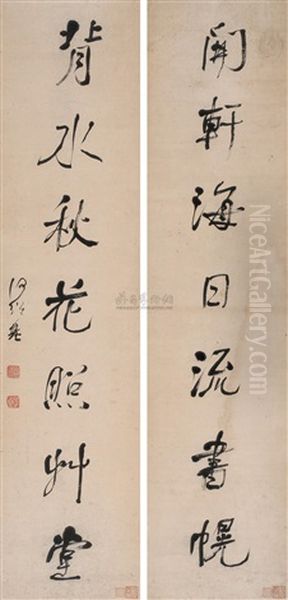 開軒海日流書幌
背水秋花照艸堂
何紹基
NiceArtGallery.com